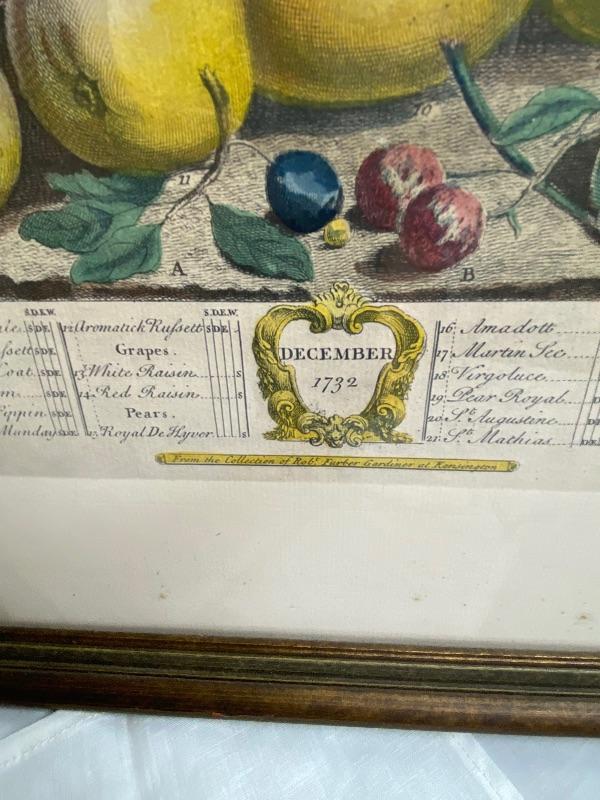 10
11
A
B
S.D.E.W. S.D.E.W.
SDE 12 Aromatick Russett SDE
SDE Grapes.
Coat SDE 13 White Raisin S
SDE 14 Red Raisin S
Pippin SDE Pears.
Munday SDE 15 Royal De Hyver S
DECEMBER
1732
16 Amadott
17 Martin Sec
18 Virgoluce
19 Pear Royal
20 St. Augustine
21 St. Mathias
From the Collection of Robt. Furber Gardiner at Kensington